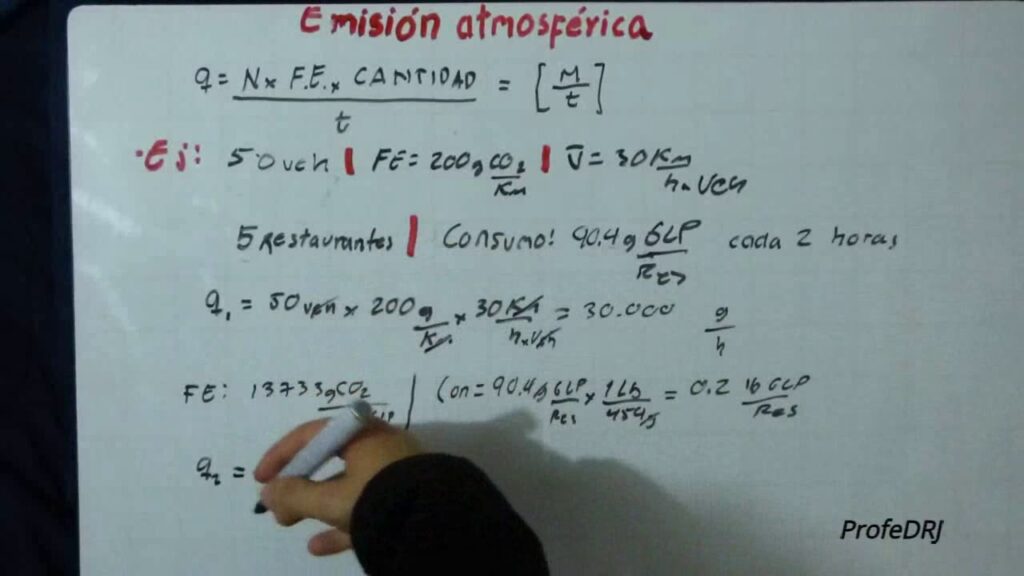 Emisión atmosférica
q = N x F.E. x CANTIDAD / t = [M/t]
·Ej: 50 veh | FE = 200 g CO2/Km | V̄ = 30 Km/h·veh
5 Restaurantes | Consumo: 90.4 g GLP/Res cada 2 horas
q1 = 50 veh x 200 g/Km x 30 Km/h x veh = 30.000 g/h
FE: 13733 g CO2 | Con = 90.4 g GLP/Res x 1 Lb/454 g = 0.2 lb GLP/Res
q2 =
ProfeDRJ